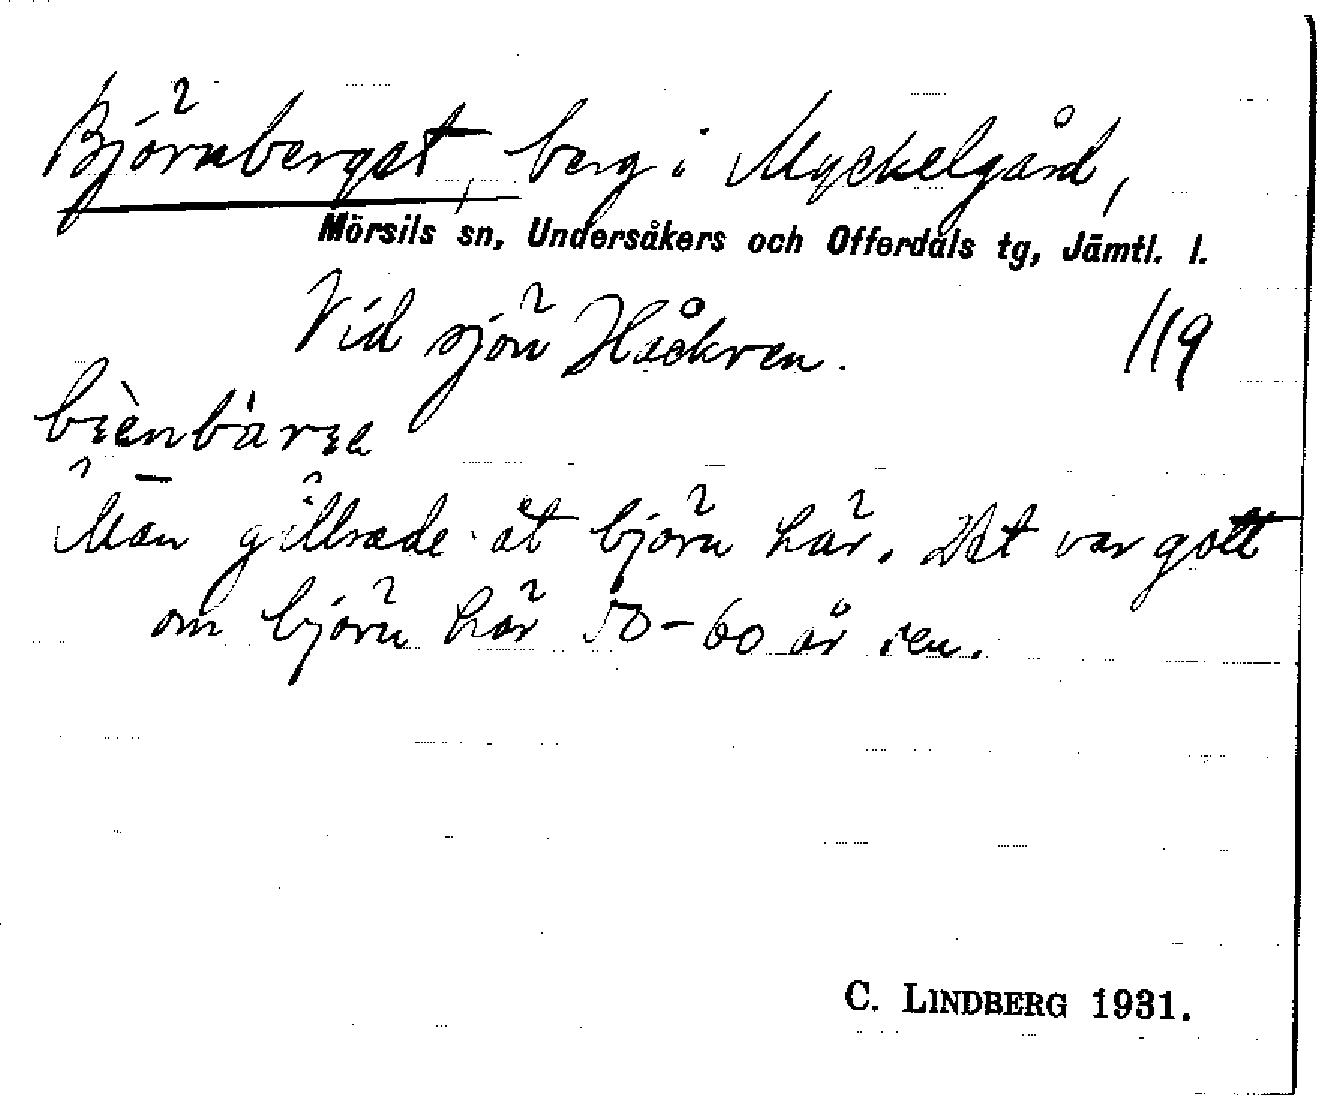 Björnberget, berg i Myckelgård,
Mörsils sn, Undersåkers och Offerdals tg, Jämtl. l.
Vid sjön Håckren. 119
Man gillrade åt björn här. Det var gott
om björn här 50-60 år sen.
C. LINDBERG 1931.